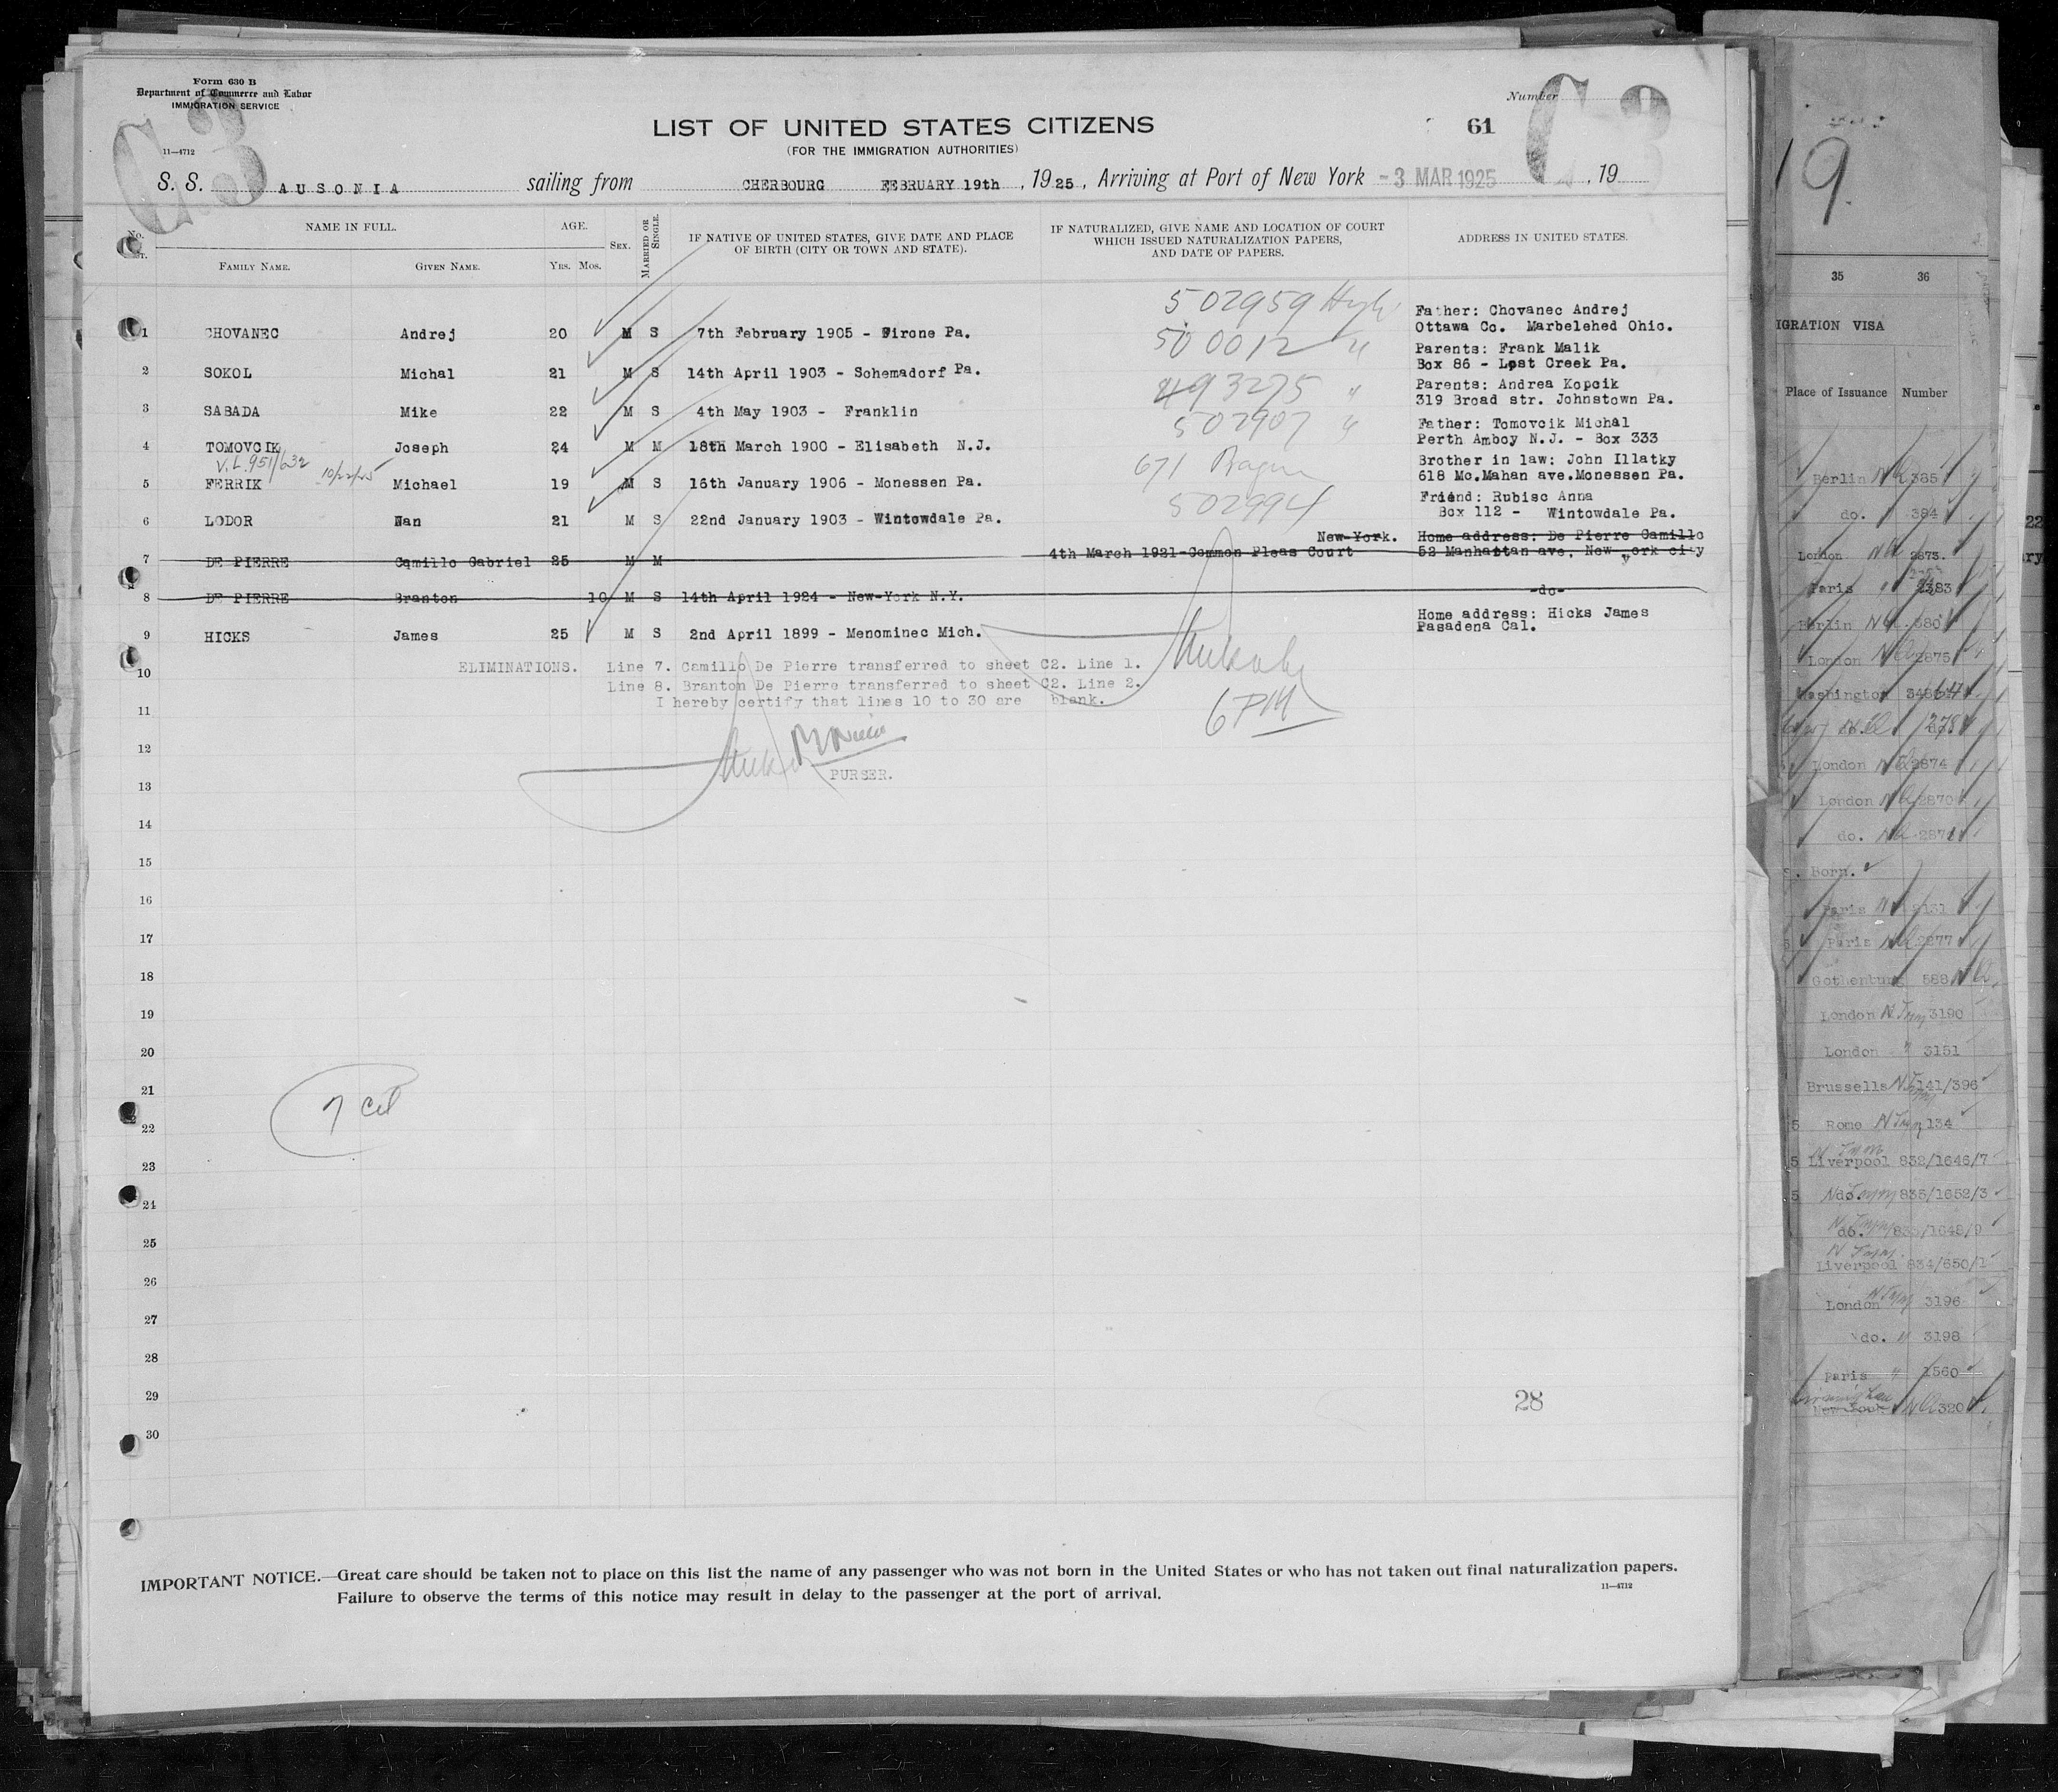 Form 630 B
Department of Commerce and Labor
IMMIGRATION SERVICE
11—4712
C3
Number
C3
LIST OF UNITED STATES CITIZENS
61
(FOR THE IMMIGRATION AUTHORITIES)
S. S. AUSONIA sailing from CHERBOURG FEBRUARY 19th, 1925, Arriving at Port of New York -3 MAR 1925, 19
NAME IN FULL. AGE. SEX. MARRIED OR SINGLE. IF NATIVE OF UNITED STATES, GIVE DATE AND PLACE OF BIRTH (CITY OR TOWN AND STATE). IF NATURALIZED, GIVE NAME AND LOCATION OF COURT WHICH ISSUED NATURALIZATION PAPERS, AND DATE OF PAPERS. ADDRESS IN UNITED STATES.
No. FAMILY NAME. GIVEN NAME. YRS. MOS.
502959
Father: Chovanec Andrej
1 CHOVANEC Andrej 20 M S 7th February 1905 - Firone Pa. Ottawa Co. Marbelehed Ohio.
500012 "
Parents: Frank Malik
Box 86 - Lost Creek Pa.
2 SOKOL Michal 21 M S 14th April 1903 - Schemadorf Pa.
493275 "
Parents: Andrea Kopcik
319 Broad str. Johnstown Pa.
3 SABADA Mike 22 M S 4th May 1903 - Franklin
502907 "
Father: Tomovcik Michal
Perth Amboy N.J. - Box 333
4 TOMOVCIK Joseph 24 M M 18th March 1900 - Elisabeth N.J.
V.L. 951/632 10/22/25
671
Brother in law: John Illatky
618 Mc.Mahan ave.Monessen Pa.
5 FERRIK Michael 19 M S 16th January 1906 - Monessen Pa.
502994
Friend: Rubisc Anna
Box 112 - Wintowdale Pa.
6 LODOR Nan 21 M S 22nd January 1903 - Wintowdale Pa.
New-York. Home address: De Pierre Camillo
4th March 1921-Common Pleas Court 52 Manhattan ave, New york city
7 DE PIERRE Camillo Gabriel 25 M M
8 DE PIERRE Branton 10 M S 14th April 1924 - New-York N.Y. -do-
Home address: Hicks James
Pasadena Cal.
9 HICKS James 25 M S 2nd April 1899 - Menominec Mich.
ELIMINATIONS. Line 7. Camillo De Pierre transferred to sheet C2. Line 1.
10
Line 8. Branton De Pierre transferred to sheet C2. Line 2.
I hereby certify that lines 10 to 30 are blank.
6 PM
11
12
PURSER.
13
14
15
16
17
18
19
20
21
7
22
23
24
25
26
27
28
29
28
30
IMPORTANT NOTICE.—Great care should be taken not to place on this list the name of any passenger who was not born in the United States or who has not taken out final naturalization papers.
Failure to observe the terms of this notice may result in delay to the passenger at the port of arrival.
11—4712
19.
35 36
IGRATION VISA
Place of Issuance Number
Berlin 385
do. 384
London 2873
Paris 2383
Berlin 380
London 2875
Washington
London 2874
London 2870
do. 2871
Born.
Paris
Paris 2877
Gothenburg 588
London 3190
London " 3151
Brussells 141/396
Rome 134
Liverpool 832/1646/7
do. 835/1652/3
do. 833/1648/9
Liverpool 834/650/1
London 3196
do. " 3198
Paris " 1560
320